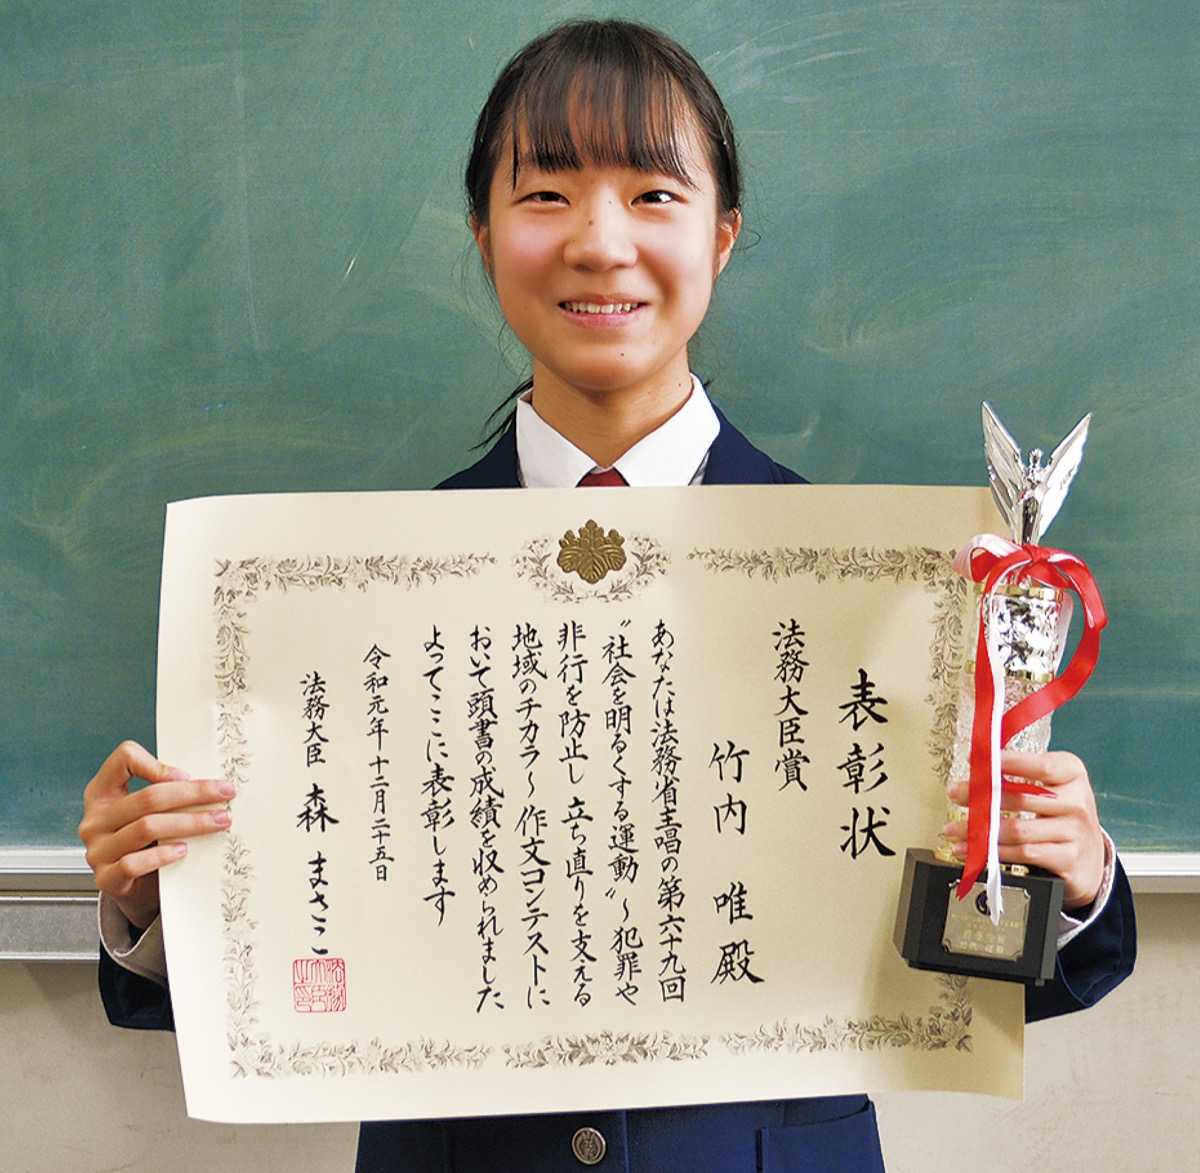 表彰状
法務大臣賞
竹内 唯 殿
あなたは法務省主唱の第六十九回
“社会を明るくする運動”～犯罪や
非行を防止し 立ち直りを支える
地域のチカラ～作文コンテストに
おいて頭書の成績を収められました
よってここに表彰します
令和元年十二月二十五日
法務大臣 森 まさこ